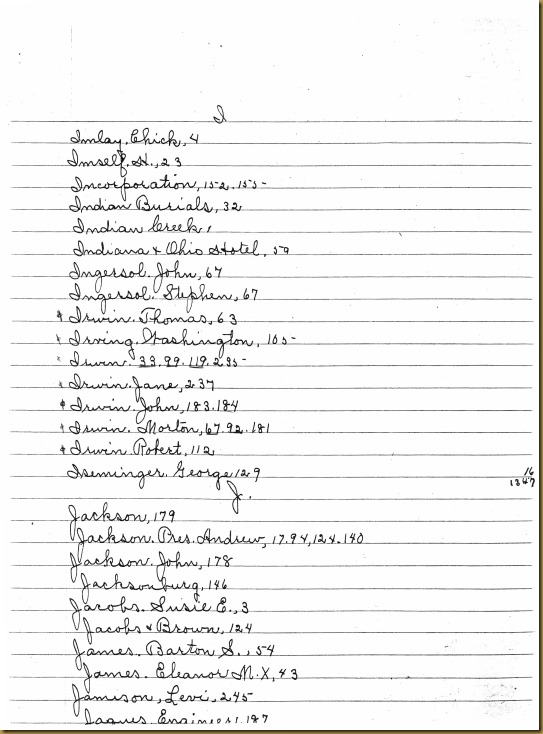 I
Imlay, Chick, 4
Imself, H., 23
Incorporation, 152.155
Indian Burials, 32
Indian Creek,
Indiana & Ohio Hotel, 59
Ingersol. John, 67
Ingersol. Stephen, 67
* Irwin. Thomas, 63
* Irving. Washington, 105
* Irwin. 33.99.119.235
* Irwin. Jane, 237
* Irwin. John, 183.184
* Irwin. Morton, 67.92.181
* Irwin. Robert, 112
Iseminger. George 129
16
1347
J.
Jackson, 179
Jackson. Pres. Andrew, 17.94, 124.140
Jackson. John, 178
Jacksonburg, 146
Jacobs. Susie E., 3
Jacobs & Brown, 124
James. Barton S., 54
James. Eleanor M. X, 43
Jamison, Levi, 245
Jaques. Engineers, 187